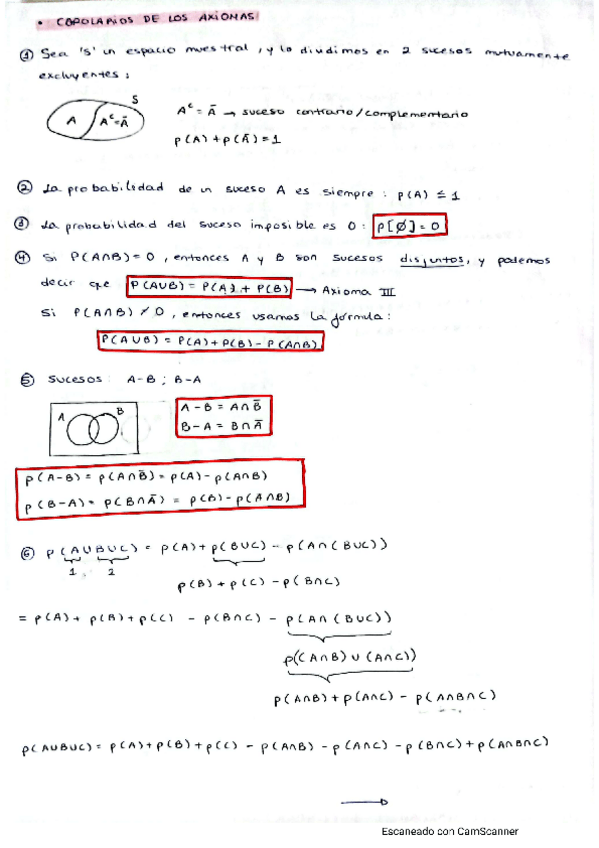 • COROLARIOS DE LOS AXIOMAS
① Sea 'S' un espacio muestral, y lo dividimos en 2 sucesos mutuamente
excluyentes:
S
A Aᶜ=Ā
Aᶜ = Ā → suceso contrario/complementario
p(A) + p(Ā) = 1
② La probabilidad de un suceso A es siempre: p(A) ≤ 1
③ La probabilidad del suceso imposible es 0: p[Ø] = 0
④ Si P(A∩B)=0, entonces A y B son sucesos disjuntos, y podemos
decir que P(A∪B) = P(A) + P(B) → Axioma III
Si P(A∩B) ≠ 0, entonces usamos la fórmula:
P(A∪B) = P(A) + P(B) - P(A∩B)
⑤ Sucesos: A-B ; B-A
A B
A-B = A∩B̄
B-A = B∩Ā
p(A-B) = p(A∩B̄) = p(A) - p(A∩B)
p(B-A) = p(B∩Ā) = p(B) - p(A∩B)
⑥ p(A∪B∪C) = p(A) + p(B∪C) - p(A∩(B∪C))
1 2
p(B) + p(C) - p(B∩C)
= p(A) + p(B) + p(C) - p(B∩C) - p(A∩(B∪C))
p((A∩B)∪(A∩C))
p(A∩B) + p(A∩C) - p(A∩B∩C)
p(A∪B∪C) = p(A) + p(B) + p(C) - p(A∩B) - p(A∩C) - p(B∩C) + p(A∩B∩C)
→
Escaneado con CamScanner